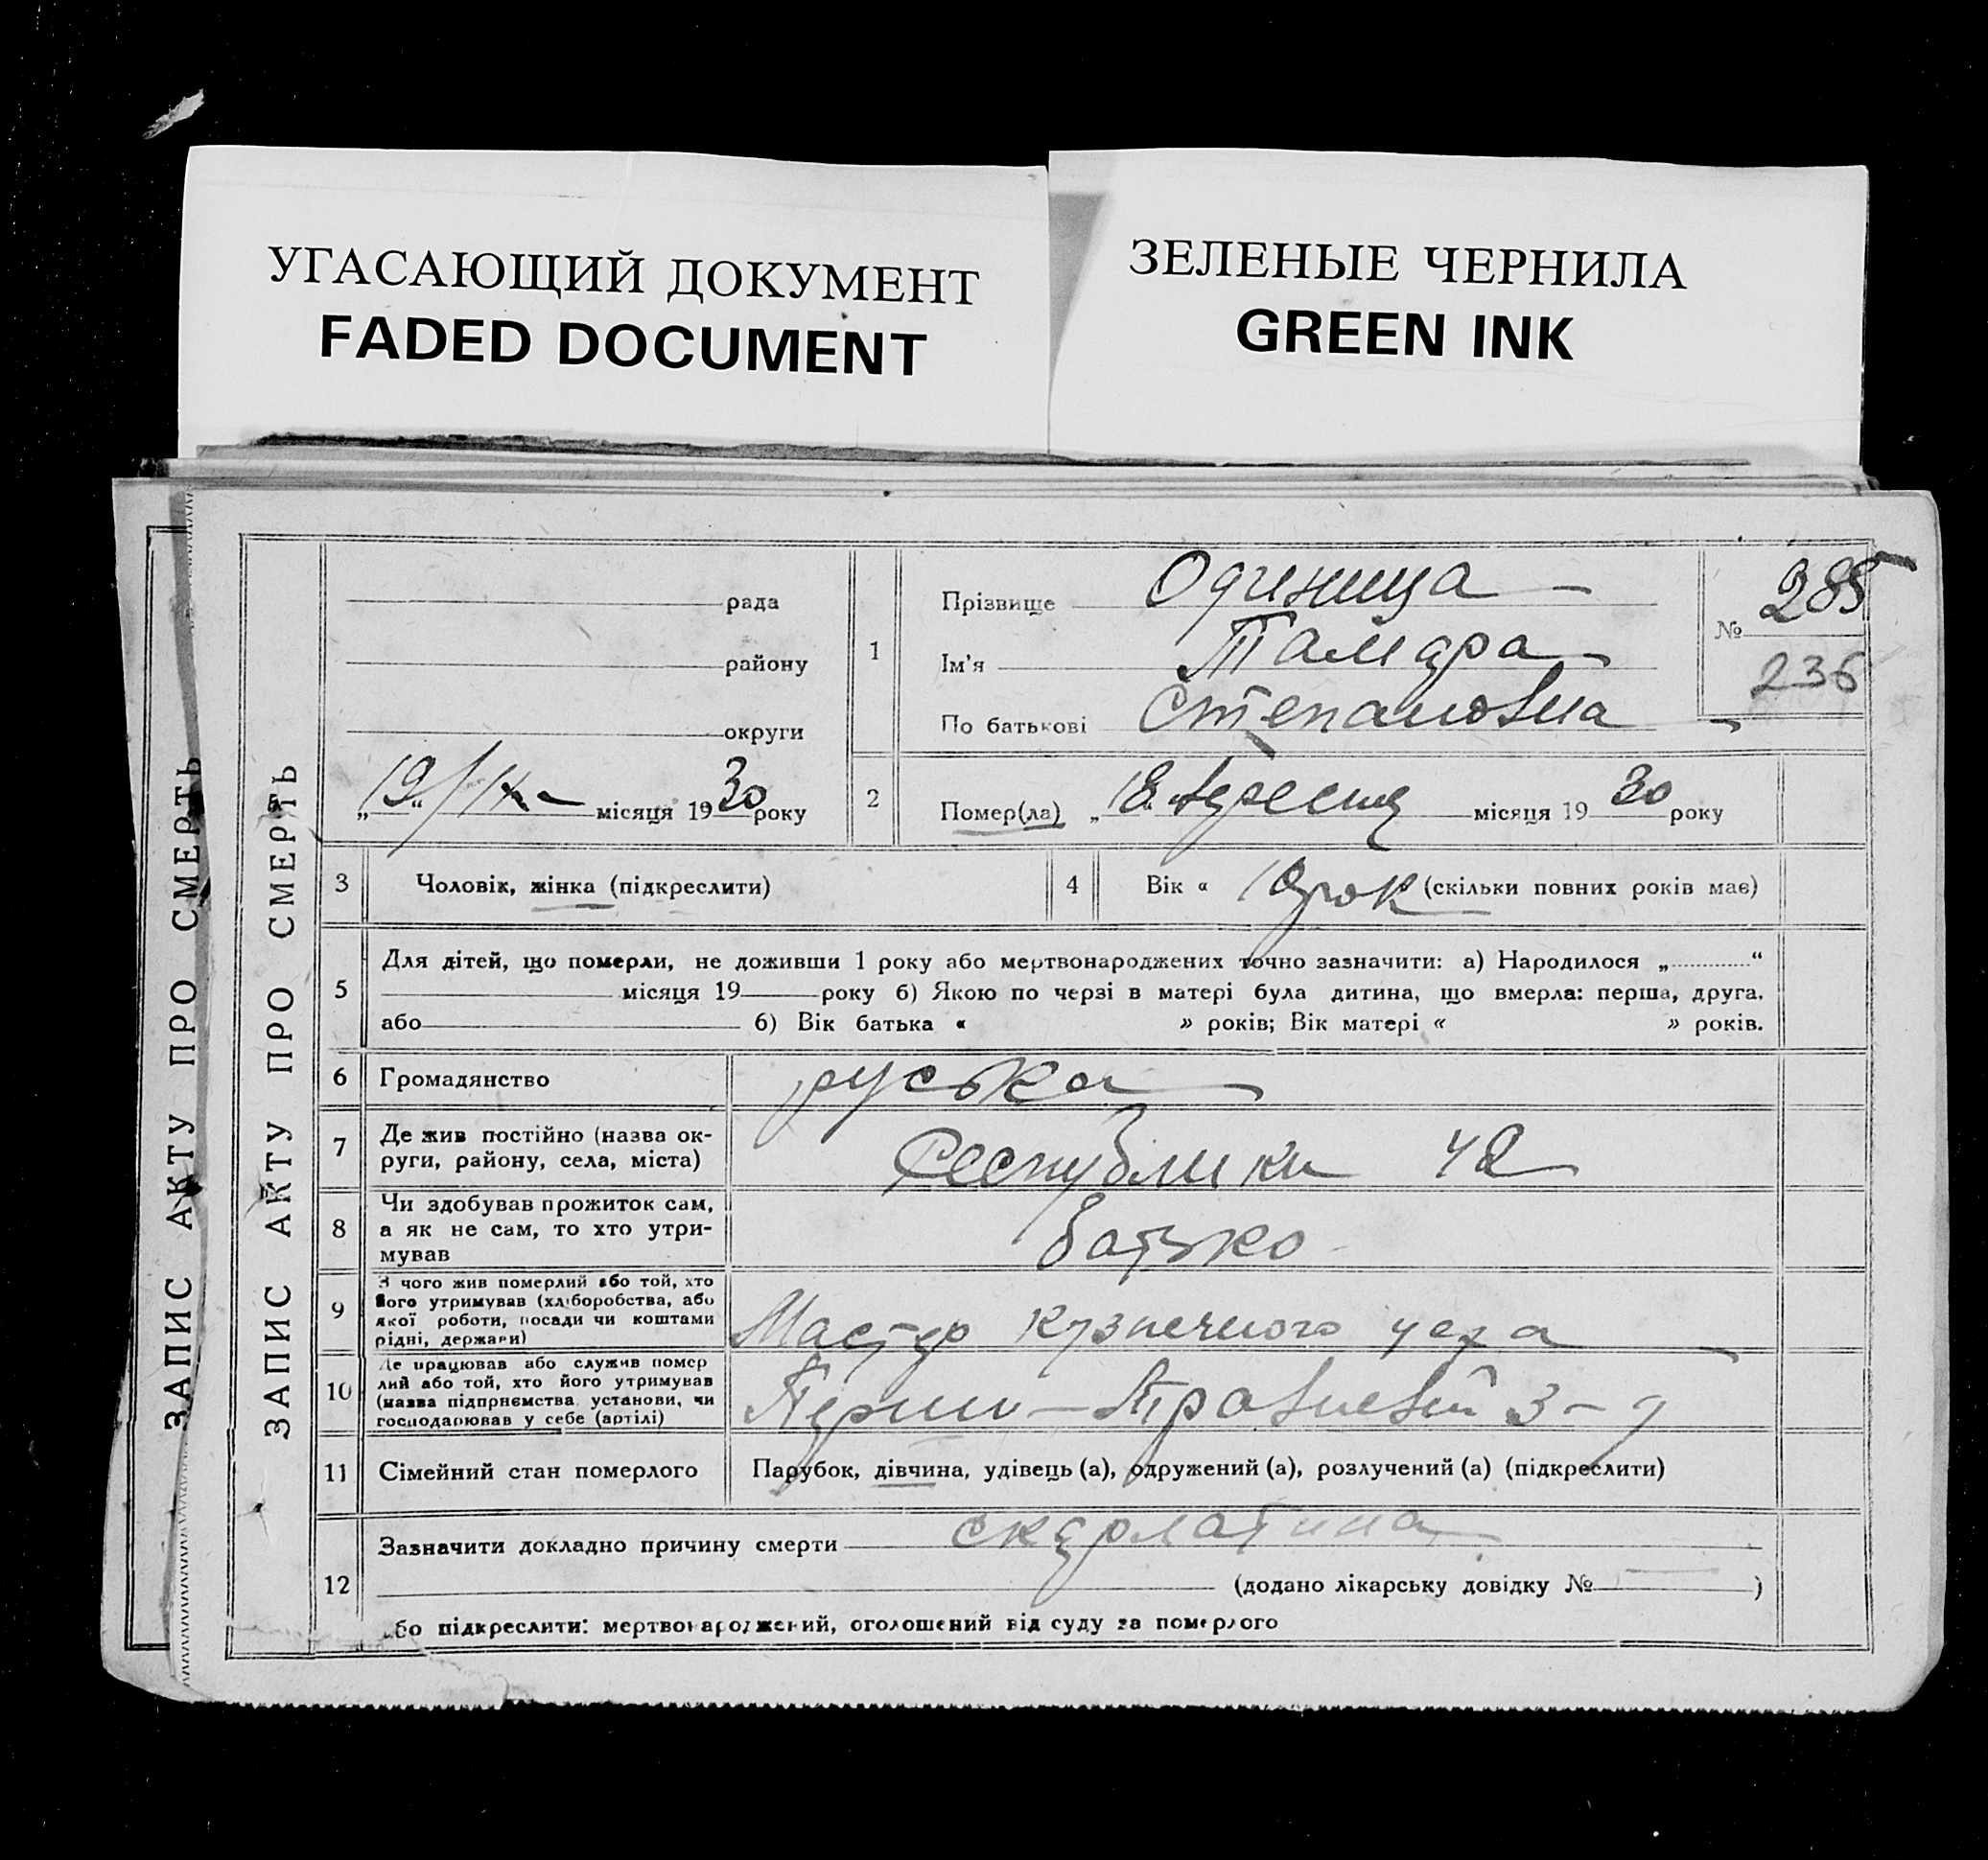 УГАСАЮЩИЙ ДОКУМЕНТ
FADED DOCUMENT
ЗЕЛЕНЫЕ ЧЕРНИЛА
GREEN INK
ЗАПИС АКТУ ПРО СМЕРТЬ
ЗАПИС АКТУ ПРО СМЕРТЬ
рада
району
округи
„19“/IX місяця 1930 року
1
Прізвище Одиница
Ім'я Тамара
По батькові Степановна
№ 285
236
2
Помер(ла) „18 вересня місяця 1930 року
3 Чоловік, жінка (підкреслити)
4 Вік « 1 рок (скільки повних років має)
5
Для дітей, що померли, не доживши 1 року або мертвонароджених точно зазначити: а) Народилося „ “
місяця 19 року б) Якою по черзі в матері була дитина, що вмерла: перша, друга,
або б) Вік батька « » років; Вік матері « » років.
6 Громадянство руська
7 Де жив постійно (назва ок-
руги, району, села, міста)
Республики 42
8 Чи здобував прожиток сам,
а як не сам, то хто утри-
мував
батько
9 З чого жив померлий або той, хто
його утримував (хліборобства, або
якої роботи, посади чи коштами
рідні, держави)
Мастер кузнечного цеха
10 Де працював або служив помер
лий або той, хто його утримував
(назва підпрнємства установи, чи
господарював у себе (артілі)
Першо-Травневий з-д
11 Сімейний стан померлого
Парубок, дівчина, удівець (а), одружений (а), розлучений (а) (підкреслити)
12
Зазначити докладно причину смерти скарлатина
(додано лікарську довідку № )
або підкреслити: мертвонароджений, оголошений від суду за померлого